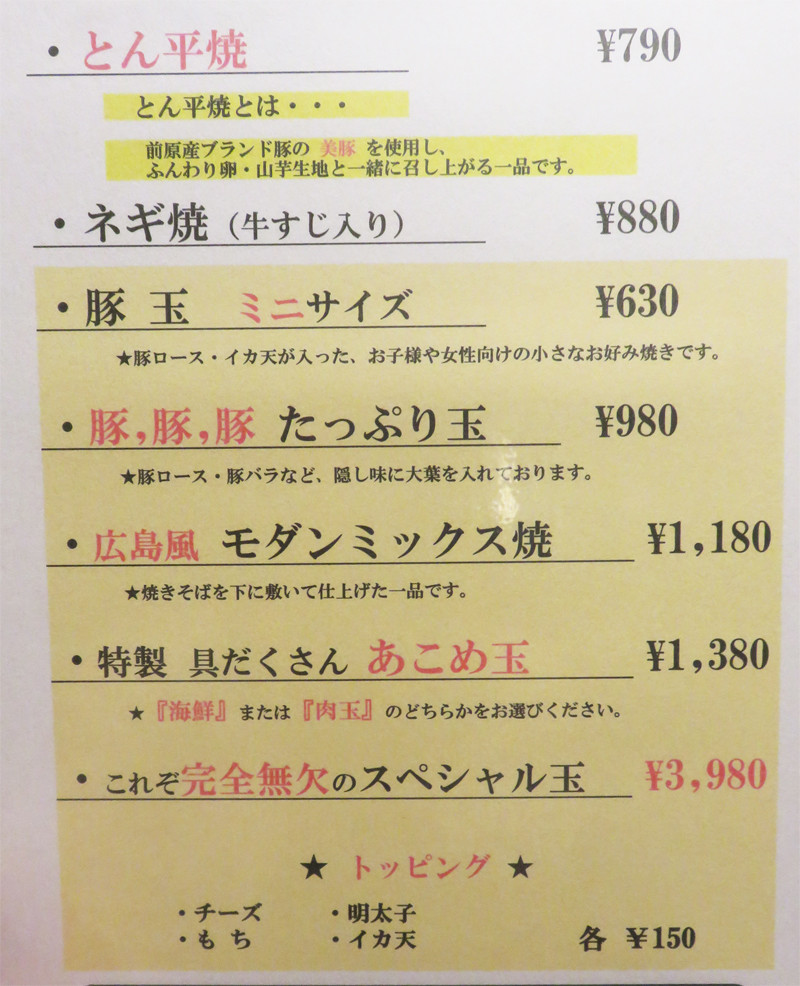 ・とん平焼 ¥790
とん平焼とは・・・
前原産ブランド豚の 美豚 を使用し、
ふんわり卵・山芋生地と一緒に召し上がる一品です。
・ネギ焼（牛すじ入り） ¥880
・豚 玉 ミニサイズ ¥630
★豚ロース・イカ天が入った、お子様や女性向けの小さなお好み焼きです。
・豚,豚,豚 たっぷり玉 ¥980
★豚ロース・豚バラなど、隠し味に大葉を入れております。
・広島風 モダンミックス焼 ¥1,180
★焼きそばを下に敷いて仕上げた一品です。
・特製 具だくさん あこめ玉 ¥1,380
★『海鮮』または『肉玉』のどちらかをお選びください。
・これぞ完全無欠のスペシャル玉 ¥3,980
★ トッピング ★
・チーズ ・明太子
・もち ・イカ天 各 ¥150